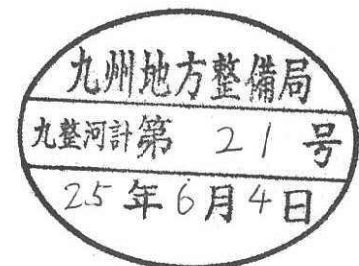 九州地方整備局
九整河計第 21 号
25年6月4日